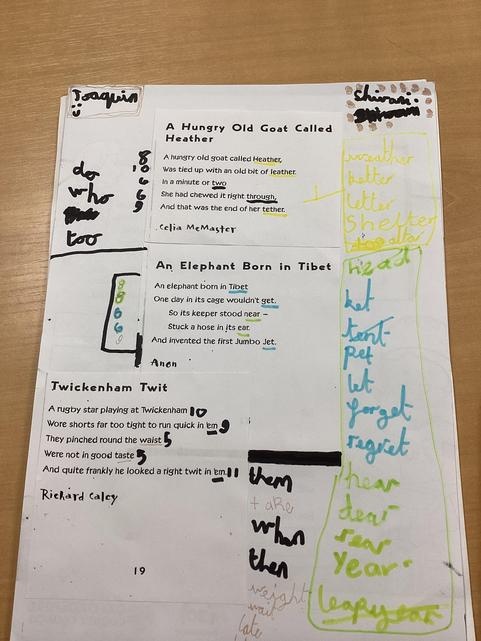 Joaquin
A Hungry Old Goat Called
Heather
A hungry old goat called Heather,
Was tied up with an old bit of leather.
In a minute or two
She had chewed it right through,
And that was the end of her tether.
Celia McMaster
8
10
6
6
9
do
who
too
An Elephant Born in Tibet
An elephant born in Tibet
One day in its cage wouldn't get.
So its keeper stood near –
Stuck a hose in its ear.
And invented the first Jumbo Jet.
Anon
8
8
6
6
9
Twickenham Twit
A rugby star playing at Twickenham 10
Wore shorts far too tight to run quick in 'em 9
They pinched round the waist 5
Were not in good taste 5
And quite frankly he looked a right twit in 'em 11
Richard Caley
19
them
take
when
then
weight
wait
late
weather
better
letter
shelter
let
pet
let
forget
regret
hear
dear
rear
year
leapyear